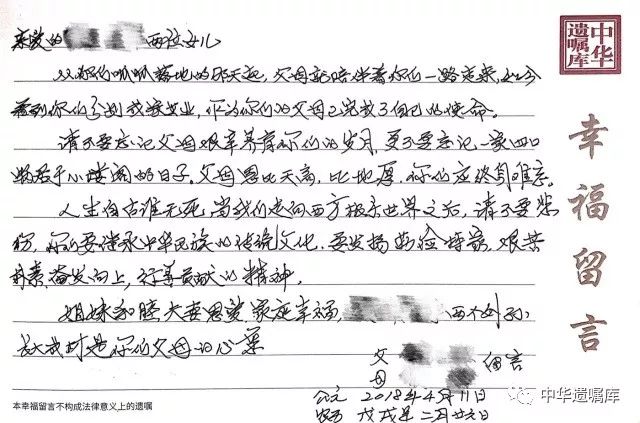 亲爱的 两位女儿
从你们呱呱落地的那天起,父母就陪伴着你们一路走来,如今
看到你们分别成家立业,作为你们的父母已完成了自己的使命。
请不要忘记父母艰辛养育你们的岁月,更不要忘记一家四口
小楼阁的日子。父母恩比天高,比地厚,你们应该
人生自古谁无死,当我们走向西方极乐世界之后,请不要悲
伤,你们要继承中华民族的传统文化,要发扬勤俭持家,艰苦
朴素,奋发向上,行善贡献的精神。
姐妹和睦夫妻恩爱,家庭幸福, 两个外孙
长大成材是你们父母的心愿
父
母 留言
公元 2018年4月11日
农历 戊戌年二月廿六日
本幸福留言不构成法律意义上的遗嘱
中华
遗嘱库
幸福留言
中华遗嘱库